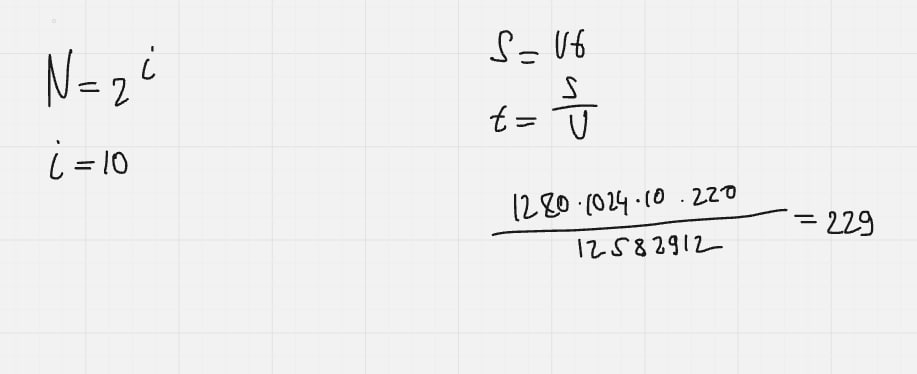 N = 2^i
i = 10
S = Vt
t = S/V
(1280 · 1024 · 10 · 220) / 12582912 = 229